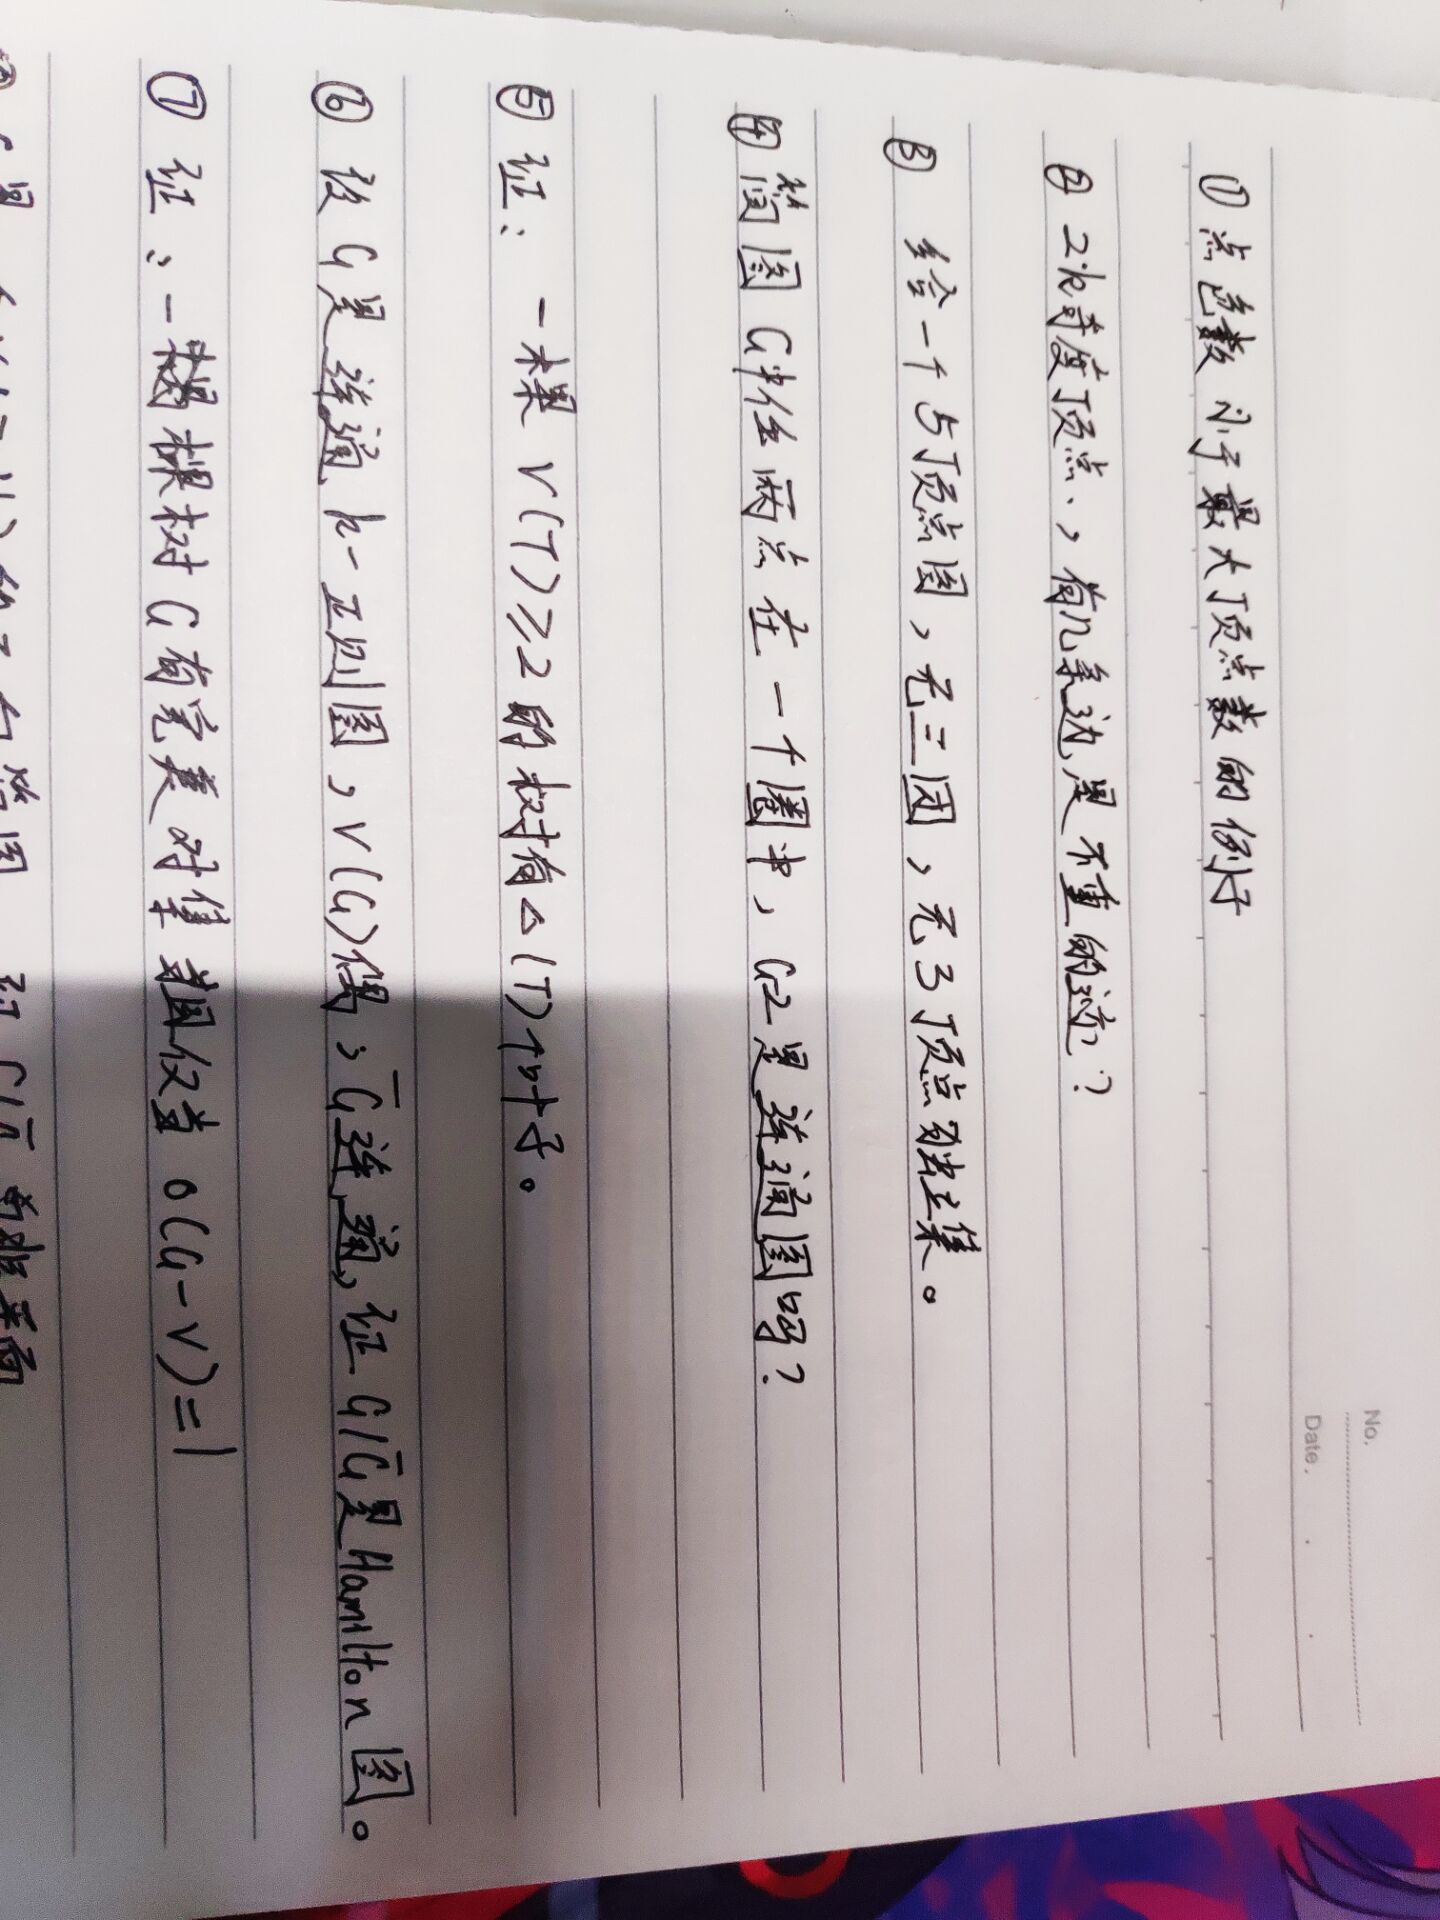 No.
Date.
① 点色数小于最大顶点数的例子
② 2k奇度顶点.,有几条边是不重的迹?
③ 给一个5顶点图,无三团,无3顶点独立集。
④ 简图G中任两点在一个圈中,G2是连通图吗?
⑤ 证: 一棵 V(T)≥2 的树有△(T)个叶子。
⑥ 设G是连通k-正则图,V(G)偶,G̅连通,证G/G̅是Hamilton图。
⑦ 证:一棵树G有完美对集当且仅当 o(G-V)=1